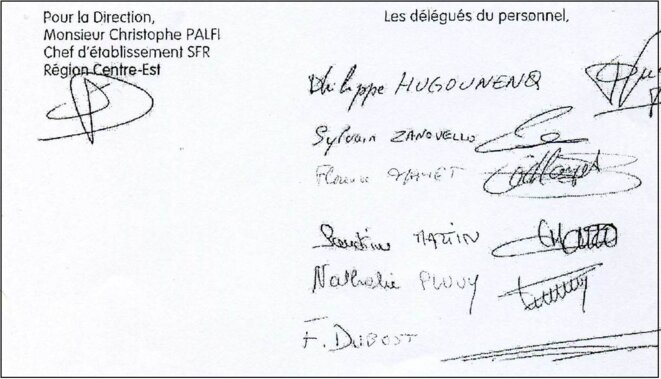 Pour la Direction,
Monsieur Christophe PALFI
Chef d'établissement SFR
Région Centre-Est
Les délégués du personnel,
Philippe HUGOUNENQ
Sylvain ZANOVELLO
MARTIN
Nathalie PLUVY
F. DUBOST